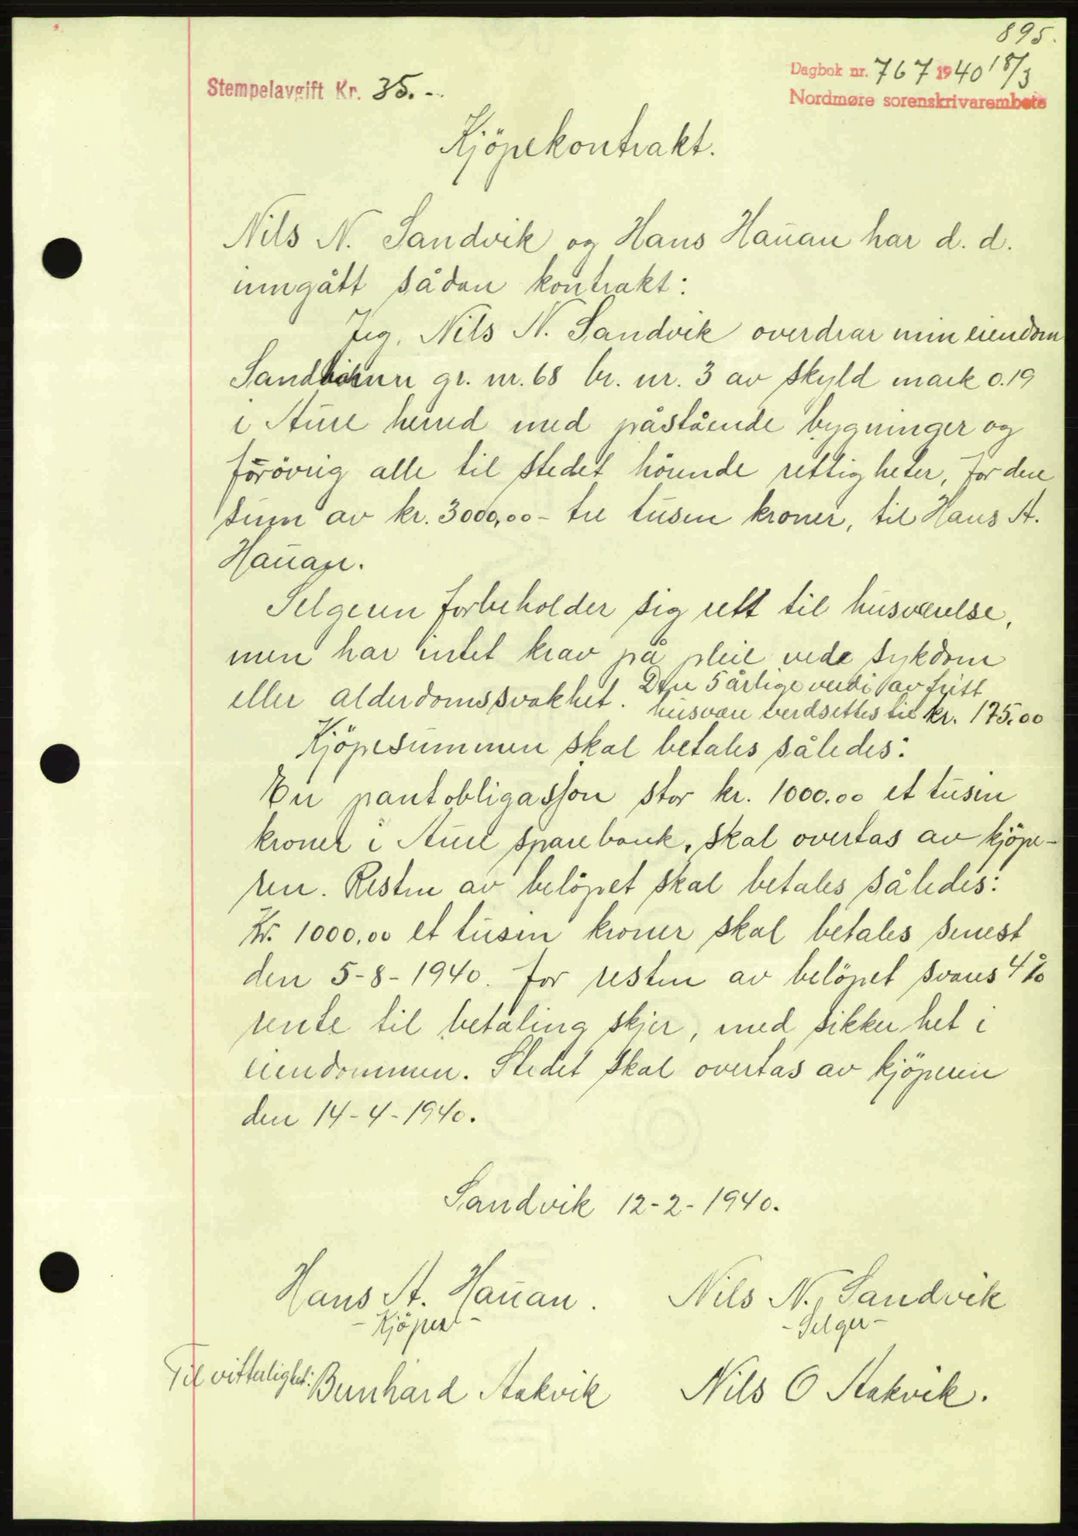 895.
Dagbok nr. 767 1940 18/3
Stempelavgift Kr. 35.-
Nordmøre sorenskrivarembete
Kjöpekontrakt.
Nils N. Sandvik og Hans Hauan har d. d.
inngått sådan kontrakt:
Jeg, Nils N. Sandvik overdrar min eiendom
gr. nr. 68 br. nr. 3 av skyld mark 0.19
i Aure herred med påstående bygninger og
forövrig alle til stedet hörende rettigheter, for den
sum av kr. 3000,00 - tre tusen kroner, til Hans A.
Hauan.
Selgeren forbeholder sig rett til husværelse,
men har intet krav på pleie ved sykdom
eller alderdomssvakhet. Den 5 årlige verdi av fritt
husvære verdsettes til kr. 175,00
Kjöpesummen skal betales således:
En pantobligasjon stor kr. 1000.00 et tusen
kroner i Aure sparebank, skal overtas av kjöpe-
ren. Resten av belöpet skal betales således:
Kr. 1000,00 et tusen kroner skal betales senest
den 5-8-1940. for resten av belöpet svares 4%
rente til betaling skjer, med sikkerhet i
eiendommen. Stedet skal overtas av kjöperen
den 14-4-1940.
Sandvik 12-2-1940.
Hans A. Hauan. Nils N. Sandvik
- Kjöper - - Selger -
Til vitterlighet: Bernhard Aakvik Nils O Aakvik.